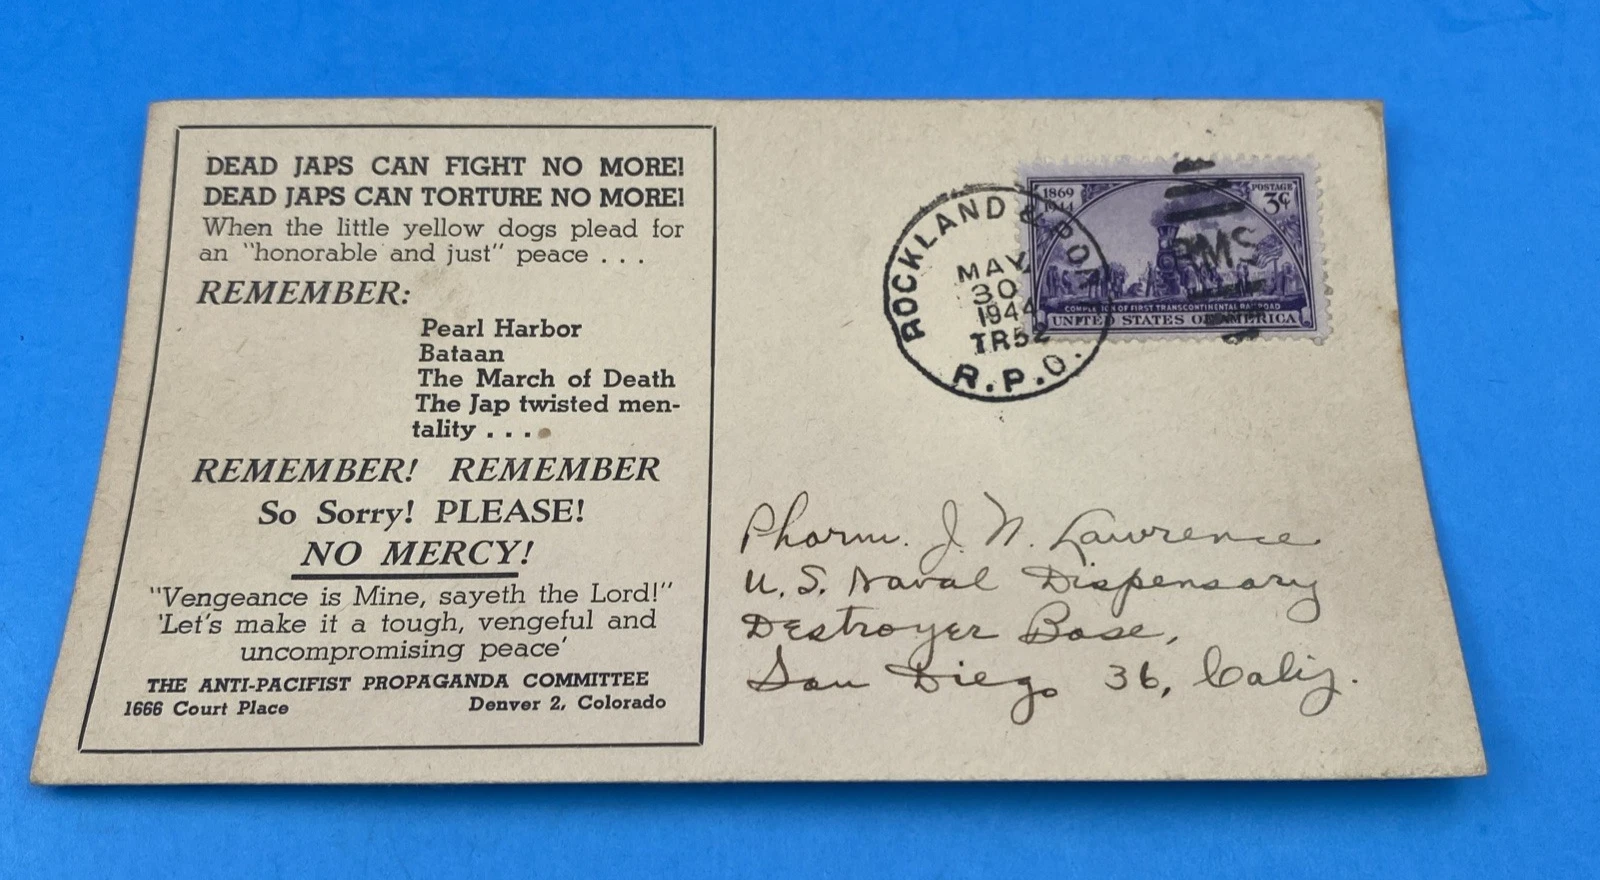 DEAD JAPS CAN FIGHT NO MORE!
DEAD JAPS CAN TORTURE NO MORE!
When the little yellow dogs plead for
an "honorable and just" peace . . .
REMEMBER:
Pearl Harbor
Bataan
The March of Death
The Jap twisted men-
tality . . .
REMEMBER! REMEMBER
So Sorry! PLEASE!
NO MERCY!
"Vengeance is Mine, sayeth the Lord!"
'Let's make it a tough, vengeful and
uncompromising peace'
THE ANTI-PACIFIST PROPAGANDA COMMITTEE
1666 Court Place Denver 2, Colorado
ROCKLAND &
MAY
30
1944
TR52
R.P.O.
1869
1944
POSTAGE
3¢
RMS
COMPLETION OF FIRST TRANSCONTINENTAL RAILROAD
UNITED STATES OF AMERICA
Pharm. J. N. Lawrence
U. S. Naval Dispensary
Destroyer Base,
San Diego 36, Calif.